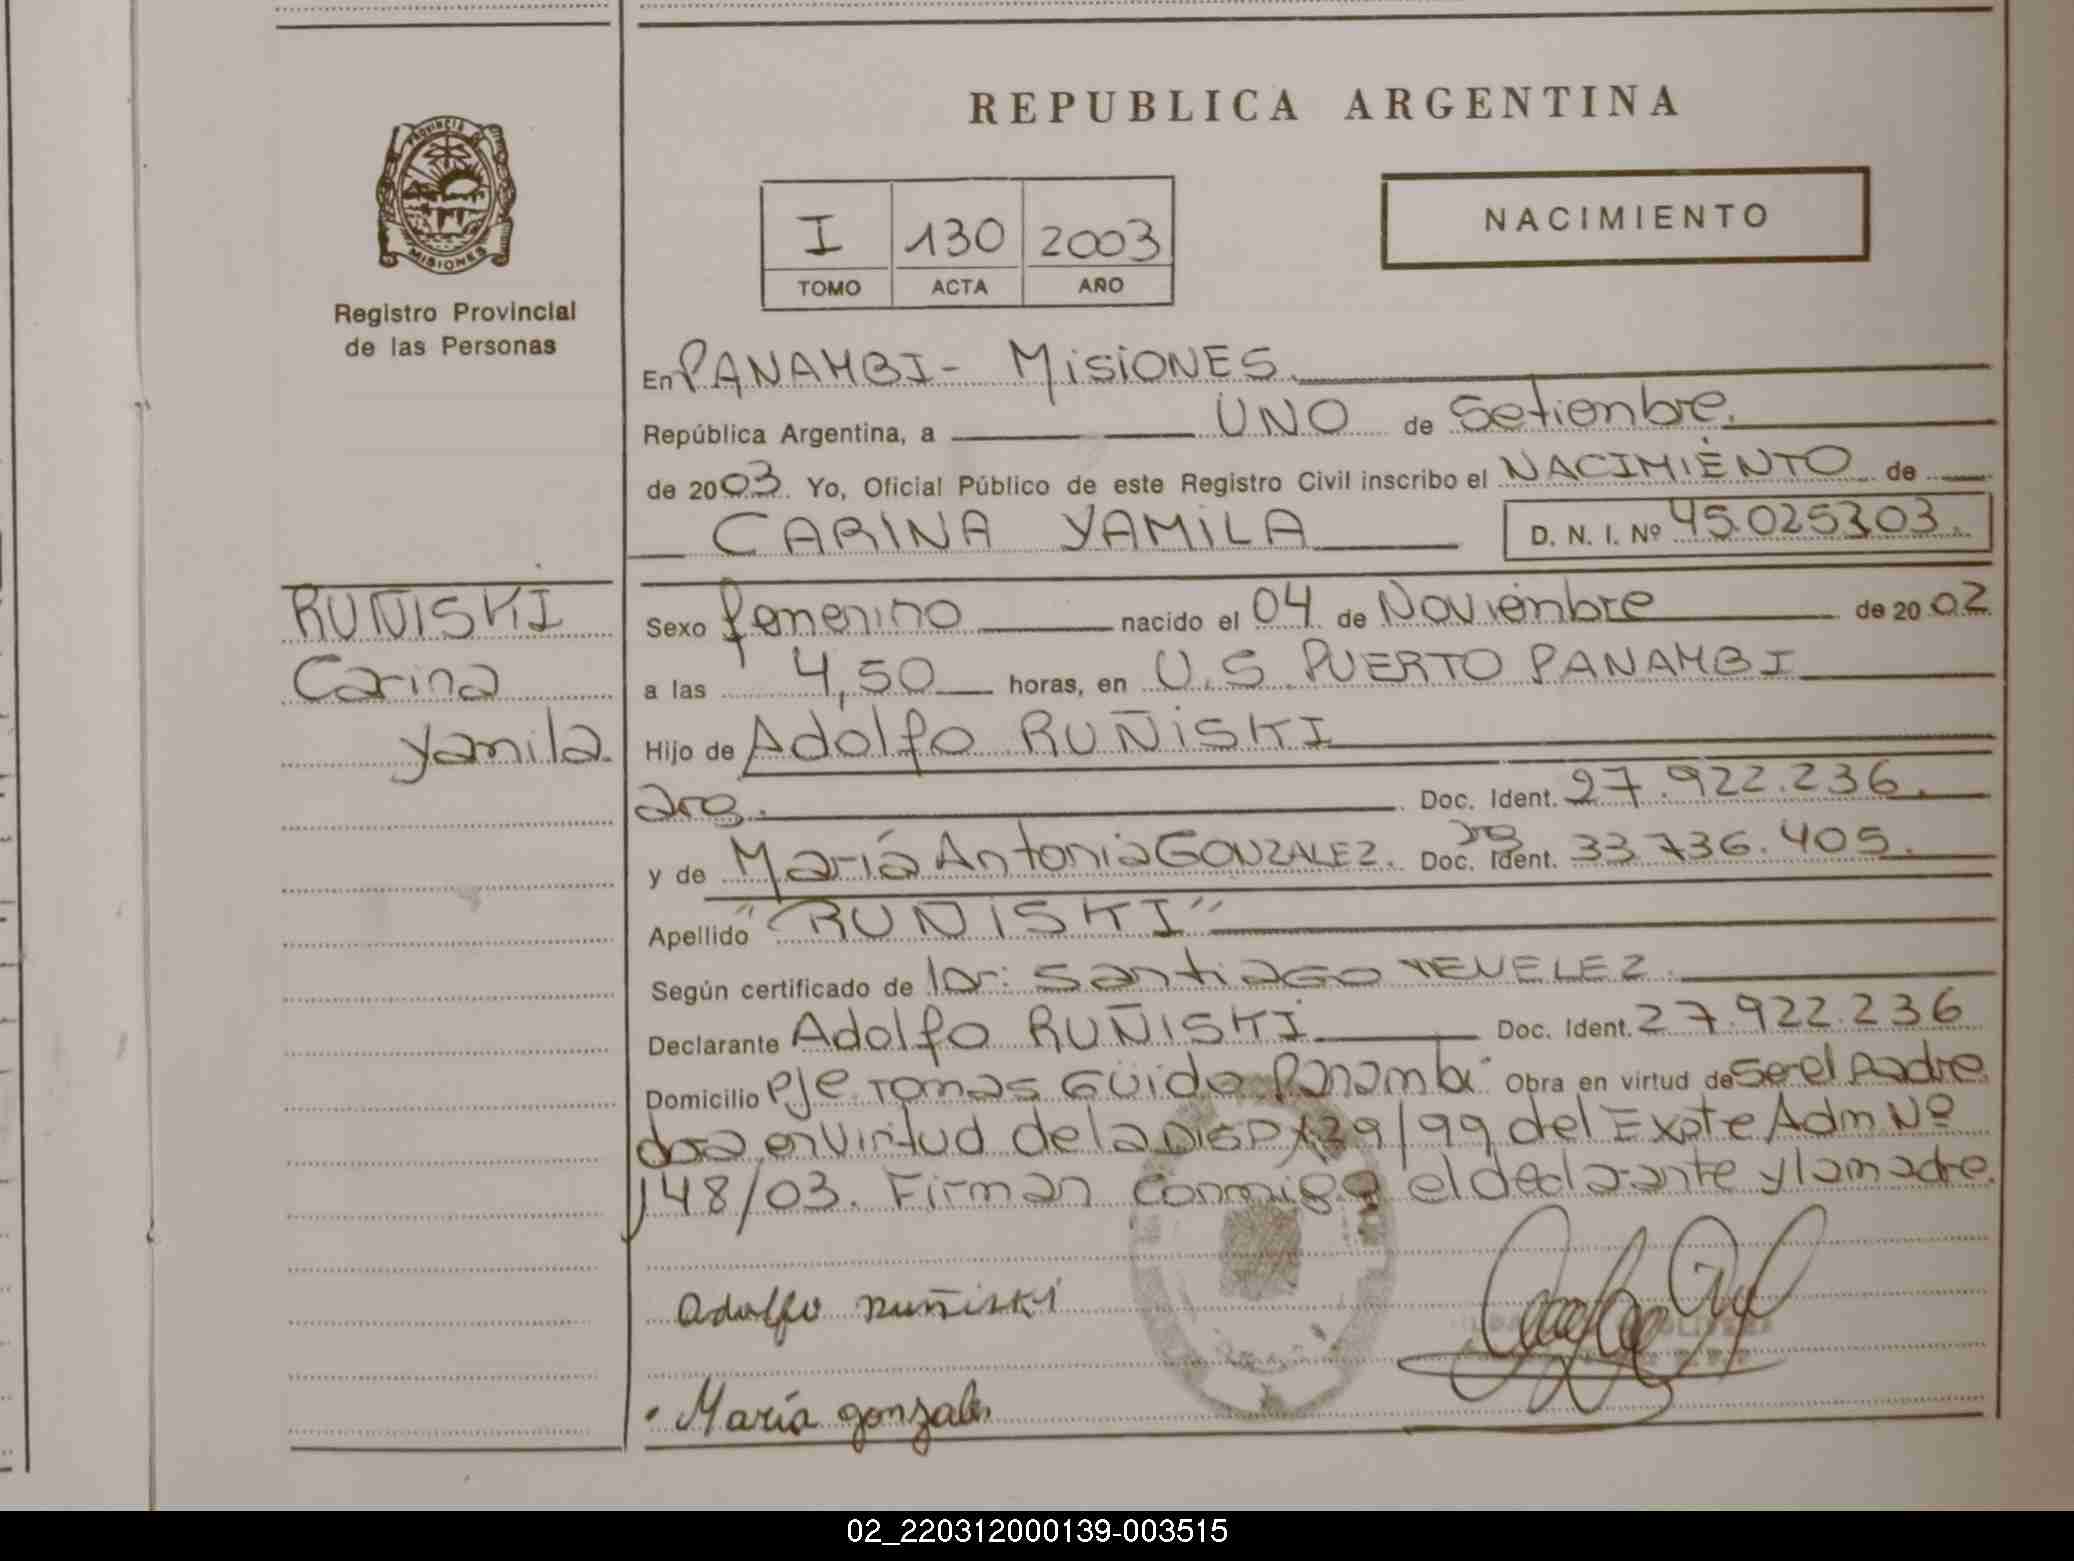 REPUBLICA ARGENTINA
PROVINCIA DE
MISIONES
Registro Provincial
de las Personas
I 130 2003
TOMO ACTA AÑO
NACIMIENTO
En PANAMBI - MISIONES
República Argentina, a UNO de Setiembre.
de 2003. Yo, Oficial Público de este Registro Civil inscribo el NACIMIENTO de
CARINA YAMILA
D. N. I. Nº 45.025303.
RUÑISKI
Carina
Yamila.
Sexo femenino nacido el 04 de Noviembre de 2002
a las 4,50 horas, en U.S. PUERTO PANAMBI
Hijo de Adolfo RUÑISKI
arg. Doc. Ident. 27.922.236.
y de María Antonia GONZALEZ. arg Doc. Ident. 33.736.405.
Apellido "RUÑISKI"
Según certificado de Santiago
Declarante Adolfo RUÑISKI Doc. Ident. 27.922.236
Domicilio Pje. Tomas Guido Panambi Obra en virtud de Ser el Padre
en virtud de la DISP 129/99 del Expte Adm Nº
148/03. Firman conmigo el declarante y la madre.
Adolfo Ruñiski
María gonzales
02_220312000139-003515